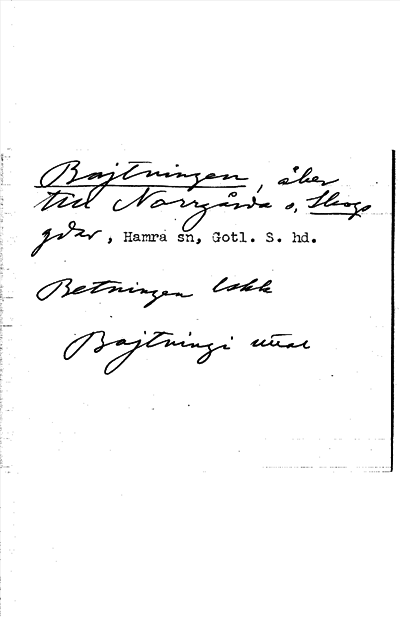 Bajtningen, åker
till Norrgårda o, Skogs
gdar, Hamra sn, Gotl. S. hd.
Betningen lskk
Bajtningi uttal